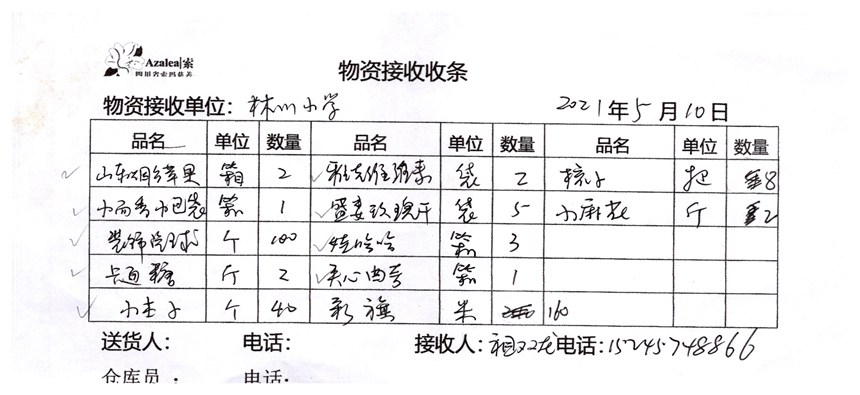 Azalea|索
四川省索玛慈善
物资接收收条
物资接收单位: 林川小学 2021年5月10日
品名 单位 数量 品名 单位 数量 品名 单位 数量
山东烟台苹果 箱 2 袋 2 梳子 把 8
箱 1 袋 5 小麻花 斤 2
装饰气球 个 100 娃哈哈 箱 3
卡通糖 斤 2 夹心曲奇 箱 1
个 40 彩旗 米 160
送货人: 电话: 接收人: 双龙 电话: 15245748866
仓库员: 电话: